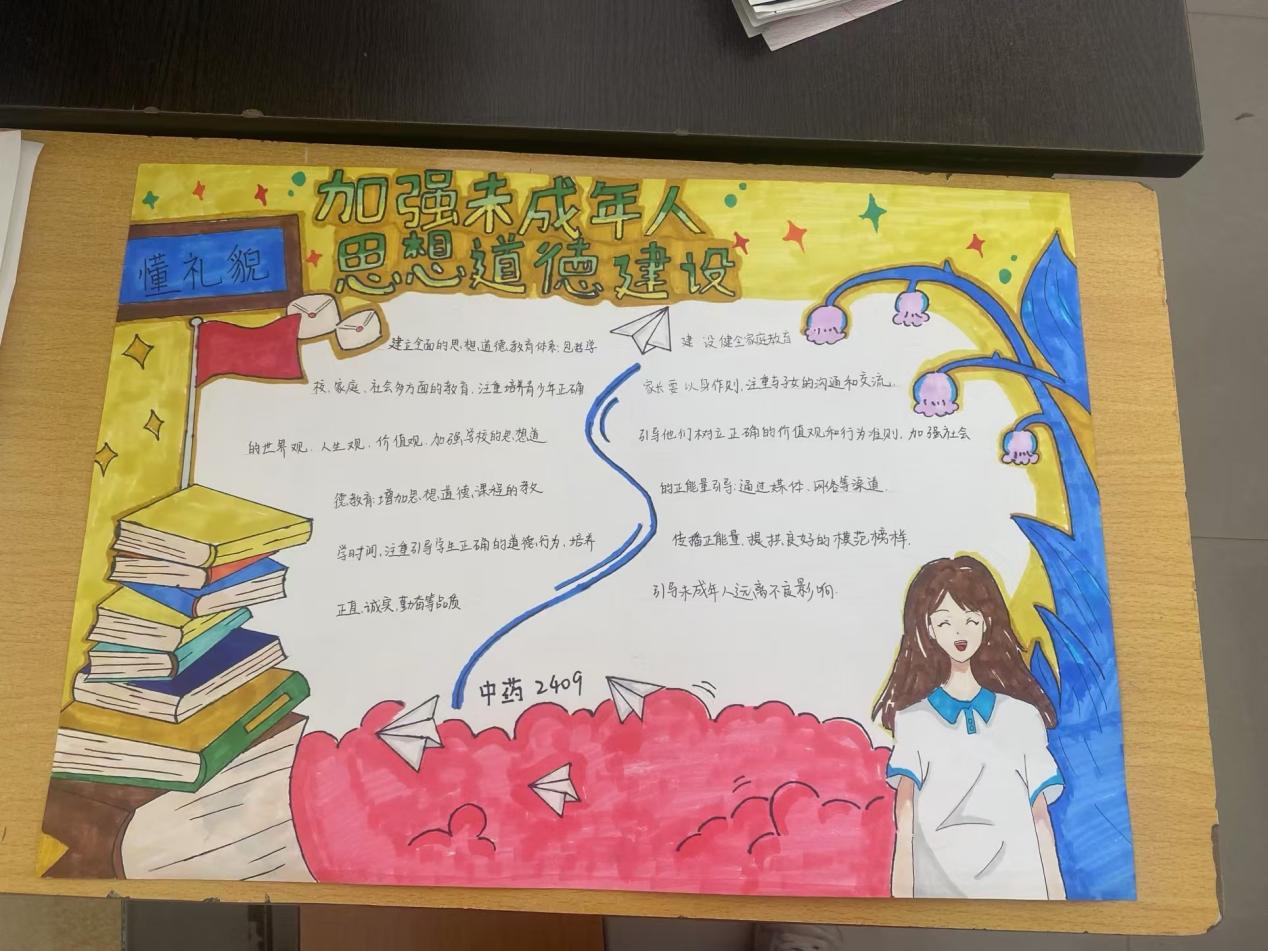 加强未成年人
思想道德建设
懂礼貌
建立全面的思想道德教育体系:包括学
校、家庭、社会多方面的教育,注重培养青少年正确
的世界观、人生观、价值观、加强学校的思想道
德教育:增加思想道德课程的教
学时间,注重引导学生正确的道德行为、培养
正直、诚实、勤奋等品质
建设健全家庭教育
家长要以身作则,注重与子女的沟通和交流.
引导他们树立正确的价值观和行为准则,加强社会
的正能量引导:通过媒体、网络等渠道
传播正能量,提供良好的模范榜样.
引导未成年人远离不良影响.
中药 2409